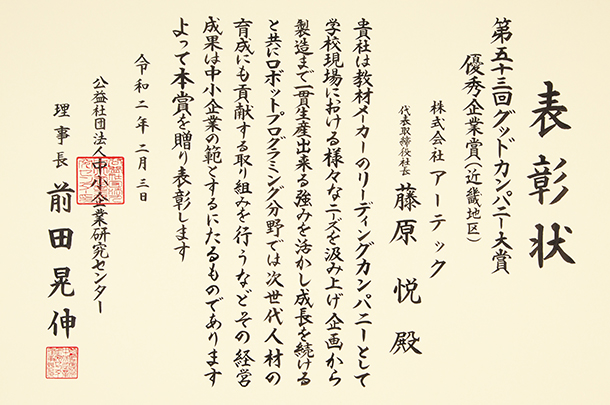 表彰状
第五十三回グッドカンパニー大賞
優秀企業賞(近畿地区)
株式会社 アーテック
代表取締役社長 藤原 悦 殿
貴社は教材メーカーのリーディングカンパニーとして
学校現場における様々なニーズを汲み上げ企画から
製造まで一貫生産出来る強みを活かし成長を続ける
と共にロボットプログラミング分野では次世代人材の
育成にも貢献する取り組みを行うなどその経営
成果は中小企業の範とするにたるものであります
よって本賞を贈り表彰します
令和二年二月三日
公益社団法人中小企業研究センター
理事長 前田晃伸